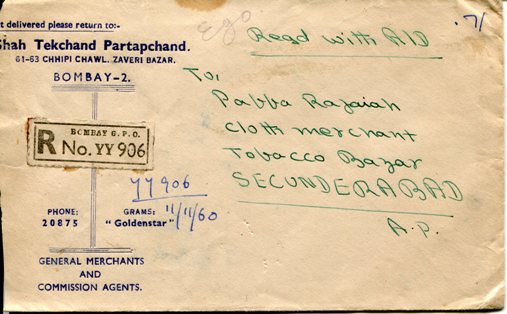 t delivered please return to:-
Shah Tekchand Partapchand.
61-63 CHHIPI CHAWL, ZAVERI BAZAR.
BOMBAY-2.
Regd with A/D
To,
Pabba Rajaiah
Cloth merchant
Tobacco Bazar
SECUNDERABAD
A.P.
BOMBAY G.P.O.
R No. YY 906
YY 906
11/11/60
PHONE: GRAMS:
20875 "Goldenstar"
GENERAL MERCHANTS
AND
COMMISSION AGENTS.